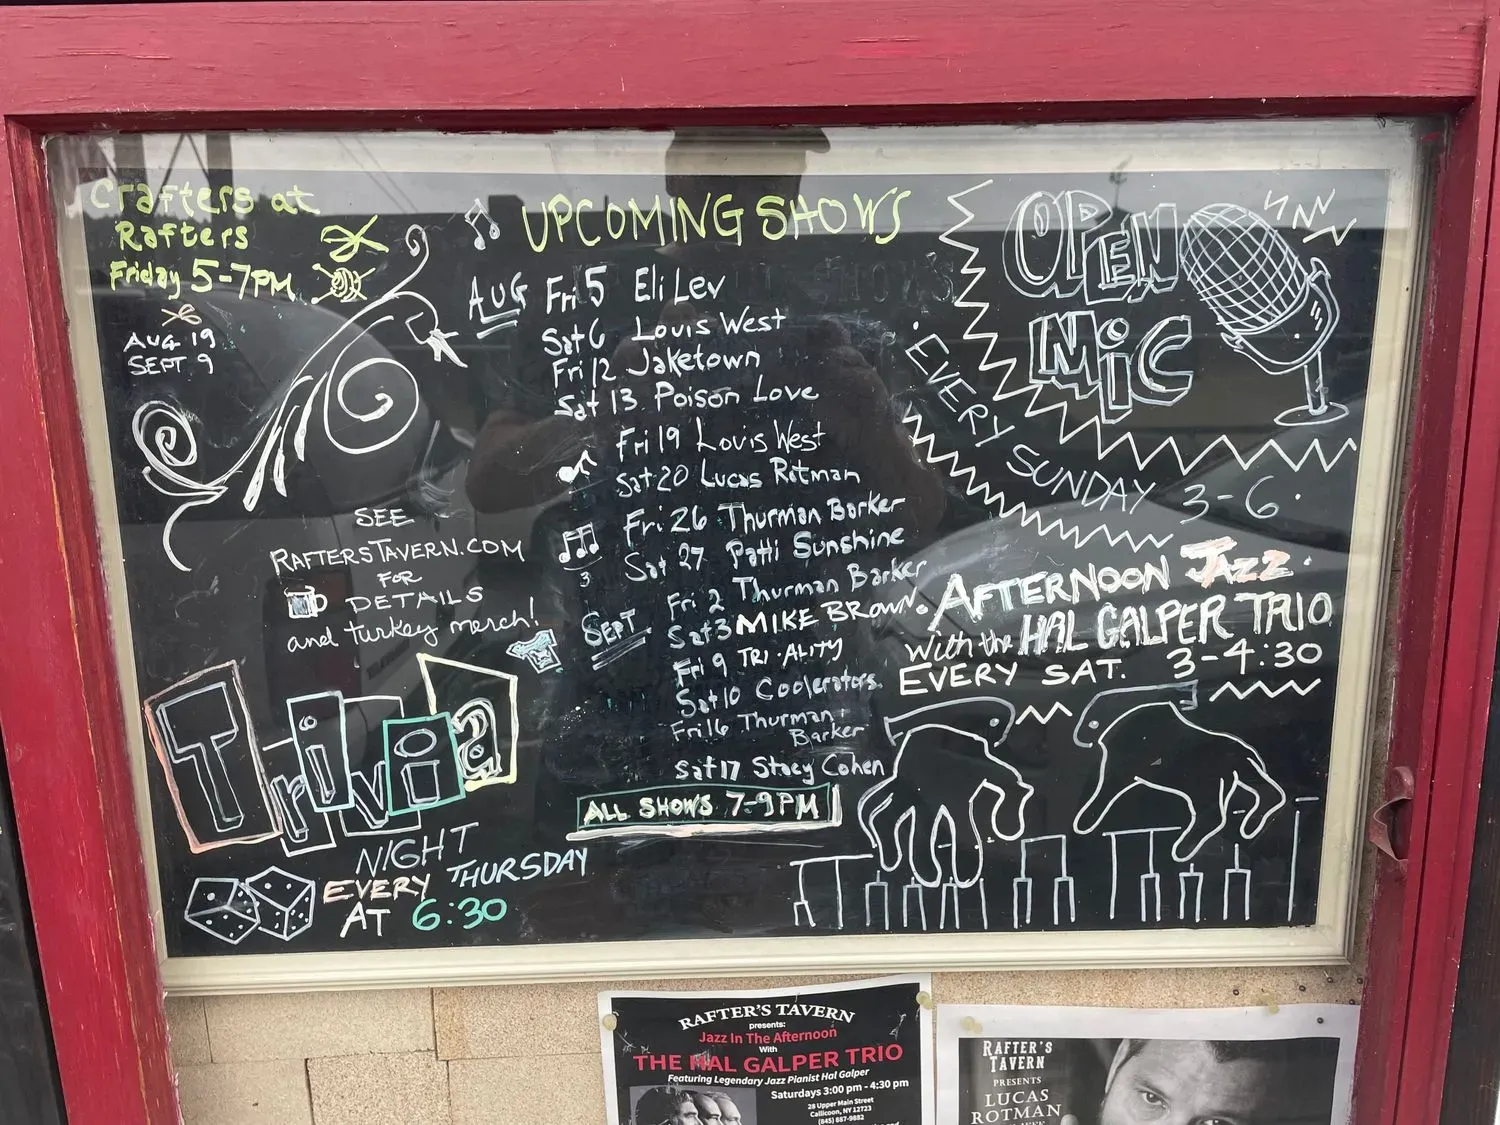 Crafters at
Rafters
Friday 5-7PM
AUG 19
SEPT. 9
SEE
RAFTERSTAVERN.COM
FOR
DETAILS
and turkey merch!
Trivia
NIGHT
EVERY THURSDAY
AT 6:30
UPCOMING SHOWS
AUG Fri 5 Eli Lev
Sat 6 Louis West
Fri 12 Jaketown
Sat 13 Poison Love
Fri 19 Louis West
Sat 20 Lucas Rotman
Fri 26 Thurman Barker
Sat 27 Patti Sunshine
SEPT Fri 2 Thurman Barker
Sat 3 MIKE BROWN
Fri 9 TRI·ALITY
Sat 10 Coolerators
Fri 16 Thurman
Barker
Sat 17 Stacy Cohen
ALL SHOWS 7-9PM
OPEN
MiC
·EVERY SUNDAY 3-6·
·AFTERNOON JAZZ·
with the HAL GALPER TRIO
EVERY SAT. 3-4:30
RAFTER'S TAVERN
presents:
Jazz In The Afternoon
With
THE HAL GALPER TRIO
Featuring Legendary Jazz Pianist Hal Galper
Saturdays 3:00 pm - 4:30 pm
28 Upper Main Street
Callicoon, NY 12723
(845) 887-9882
RAFTER'S
TAVERN
PRESENTS
LUCAS
ROTMAN